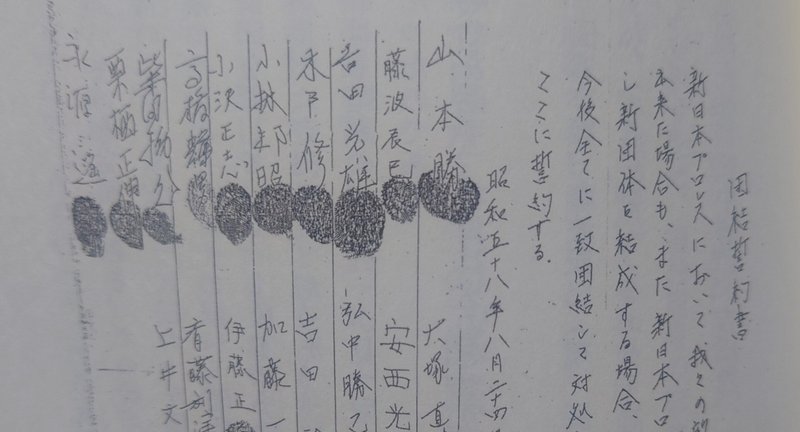 団結誓約書
新日本プロレスにおいて我々の
出来た場合も、また新日本プロ
し新団体を結成する場合、
今後全てに一致団結して対処
ここに誓約する。
昭和五十八年八月二十四
山本 勝
藤波辰巳
吉田光雄
木下 修
小林邦昭
小沢正志
高橋
栗栖正伸
永源 遙
大塚 直
安西光
弘中勝己
吉田
加藤 一
伊藤正
斉藤
上井文